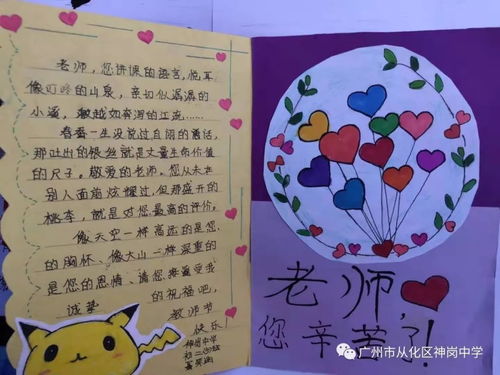 老师，您讲课的语言，悦耳
像叮咚的山泉，亲切似潺潺的
小溪，激越如奔泻的江流……
春蚕一生没说过自诩的话，
那吐出的银丝就是丈量生命价值
的尺子。敬爱的老师，您从未在
别人面前炫耀过，但那盛开的
桃李，就是对您最高的评价。
像天空一样高远的是您
的胸怀、像大山一样深重的
是您的恩情、请您接受我
诚挚 的祝福吧，
教师节
快乐！
神岗中学
老师，
您辛苦了！
广州市从化区神岗中学